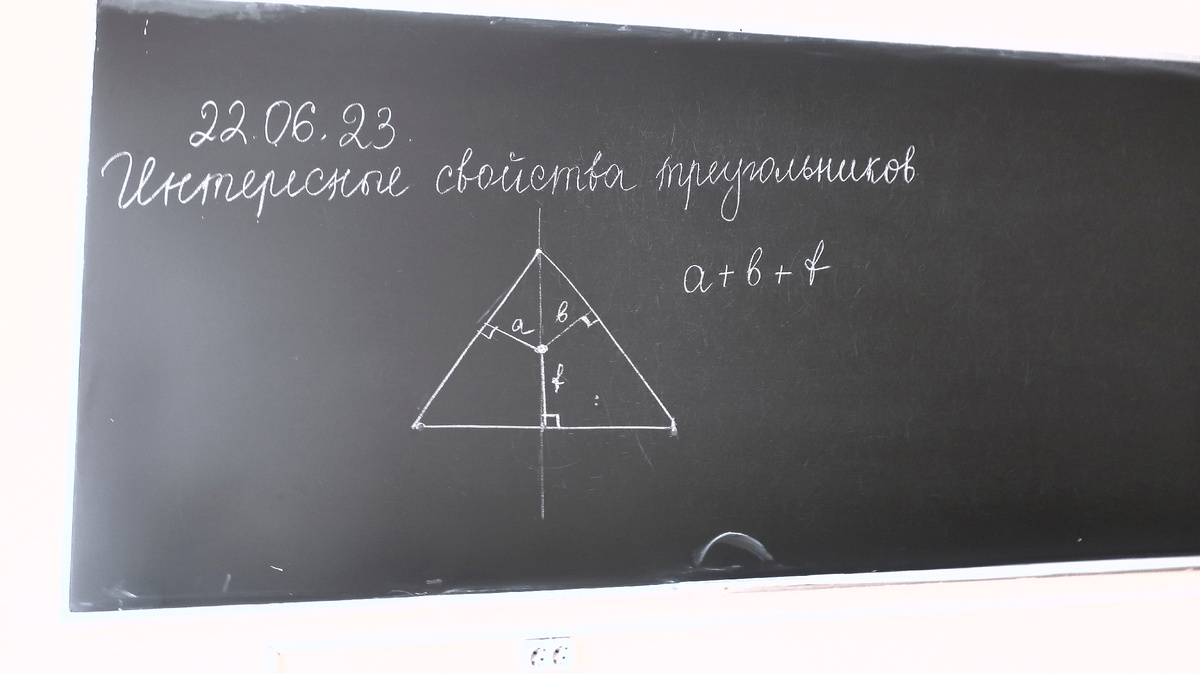 22.06.23.
Интересные свойства треугольников
a + b + f
a
b
f